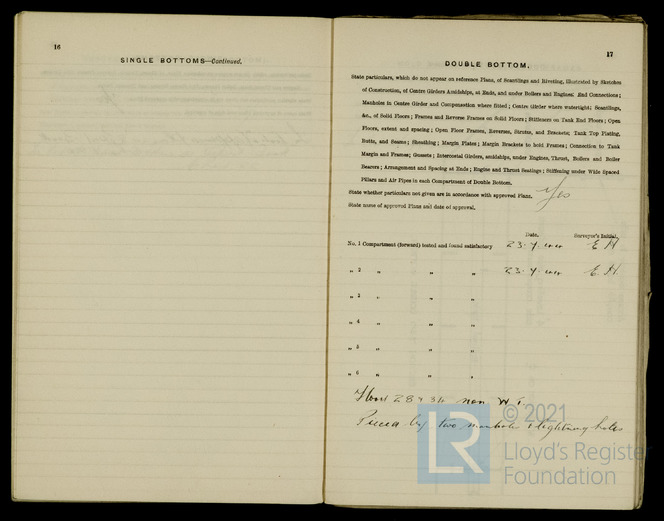 16
SINGLE BOTTOMS—Continued.
17
DOUBLE BOTTOM.
State particulars, which do not appear on reference Plans, of Scantlings and Riveting, illustrated by Sketches
of Construction, of Centre Girders Amidships, at Ends, and under Boilers and Engines: End Connections;
Manholes in Centre Girder and Compensation where fitted; Centre Girder where watertight; Scantlings,
&c., of Solid Floors; Frames and Reverse Frames on Solid Floors; Stiffeners on Tank End Floors; Open
Floors, extent and spacing; Open Floor Frames, Reverses, Struts, and Brackets; Tank Top Plating,
Butts, and Seams; Sheathing; Margin Plates; Margin Brackets to hold Frames; Connection to Tank
Margin and Frames; Gussets; Intercostal Girders, amidships, under Engines, Thrust, Boilers and Boiler
Bearers; Arrangement and Spacing at Ends; Engine and Thrust Seatings; Stiffening under Wide Spaced
Pillars and Air Pipes in each Compartment of Double Bottom.
State whether particulars not given are in accordance with approved Plans. Yes
State name of approved Plans and date of approval.
Date. Surveyor's Initial.
No. 1 Compartment (forward) tested and found satisfactory 23. 4. E H.
„ 2 „ „ „ 23. 4. E H.
„ 3 „ „ „
„ 4 „ „ „
„ 5 „ „ „
„ 6 „ „ „
28 & 36 non W T.
by two manholes & lightning holes
LR © 2021
Lloyd's Register
Foundation